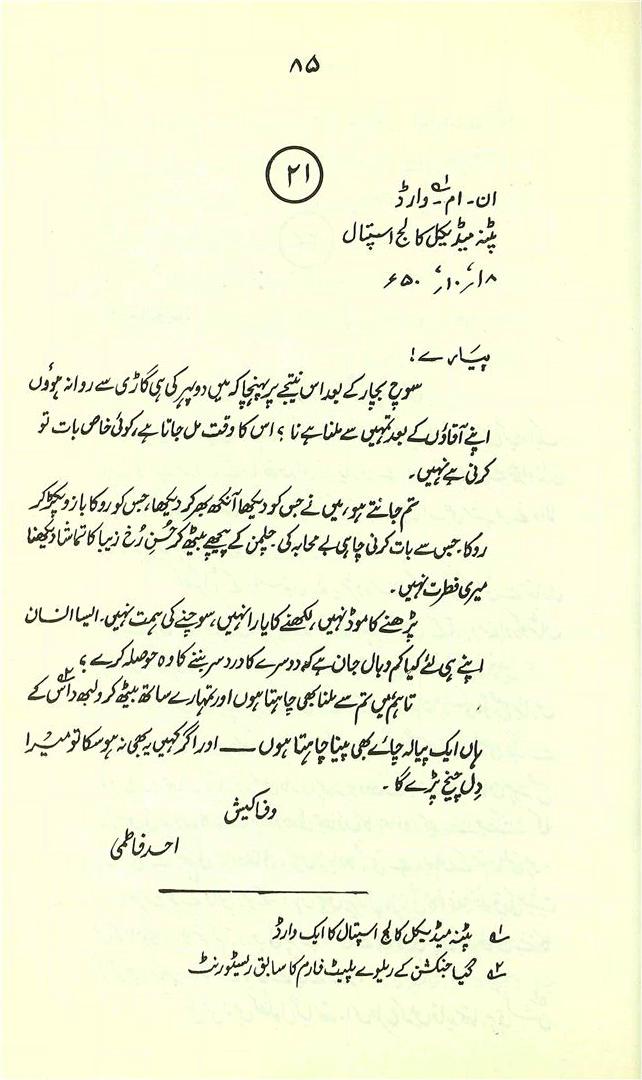 ۸۵
۲۱
ان۔ ام۔ وارڈ ۱ے
پٹنہ میڈیکل کالج اسپتال
۱۸؍ ۱۰؍ ۶۵۰ء
پیارے!
سوچ بچار کے بعد اس نتیجے پر پہنچا کہ میں دوپہر کی ہی گاڑی سے روانہ ہوؤں
اپنے آقاؤں کے بعد تمہیں سے ملنا ہے نا؟ اس کا وقت مل جاتا ہے، کوئی خاص بات تو
کرنی ہے نہیں۔
تم جانتے ہو، میں نے جس کو دیکھا آنکھ بھر کر دیکھا، جس کو روکا بازو پکڑ کر
روکا۔ جس سے بات کرنی چاہی بے محابہ کی۔ چلمن کے پیچھے بیٹھ کر حُسنِ رُخِ زیبا کا تماشا دیکھنا
میری فطرت نہیں۔
پڑھنے کا موڈ نہیں، لکھنے کا یارا نہیں، سوچنے کی ہمت نہیں۔ ایسا انسان
اپنے ہی لئے کیا کم وبال جان ہے کہ دوسرے کا دردِ سر بننے کا وہ حوصلہ کرے؟
تاہم میں تم سے ملنا بھی چاہتا ہوں اور تمہارے ساتھ بیٹھ کر ولبھ داس ۲ے کے
ہاں ایک پیالہ چائے بھی پینا چاہتا ہوں —— اور اگر کہیں یہ بھی نہ ہو سکا تو میرا
دِل چیخ پڑے گا۔
وفا کیش
احمد فاطمی
۱ے پٹنہ میڈیکل کالج اسپتال کا ایک وارڈ
۲ے گیا جنکشن کے ریلوے پلیٹ فارم کا سابق ریسٹورنٹ